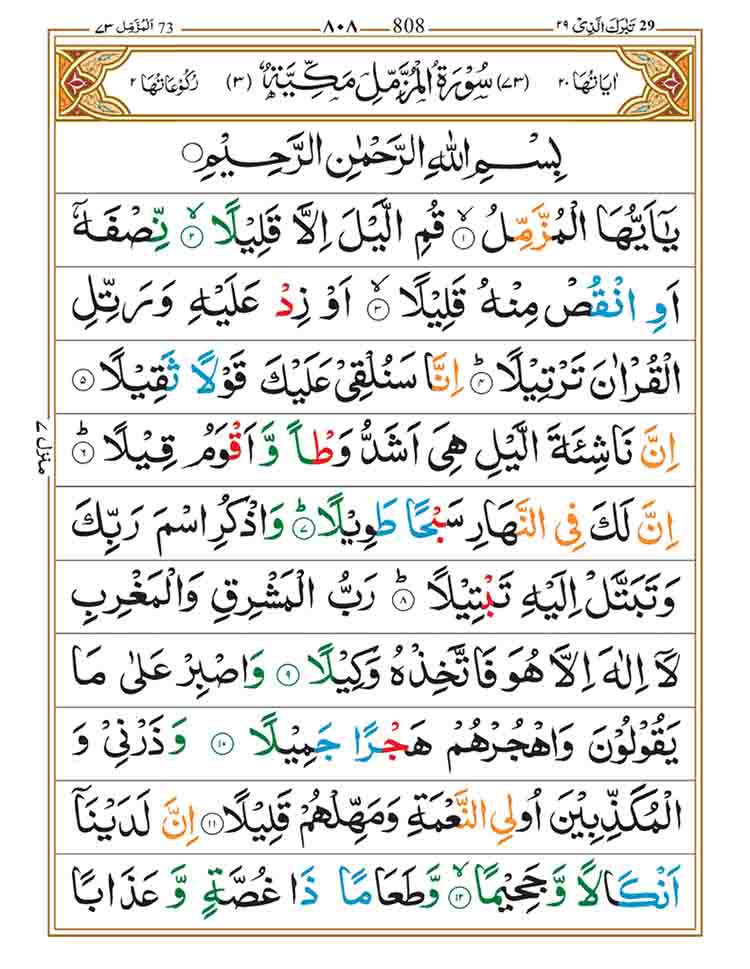 تَبٰرَكَ الَّذِیْ ۲۹ 29 808 ۸۰۸ اَلْمُزَّمِّل ۷۳ 73
اٰیَاتُهَا ۲۰ (۷۳) سُوْرَةُ الْمُزَّمِّلِ مَكِّیَّةٌ (۳) رُكُوْعَاتُهَا ۲
بِسْمِ اللّٰهِ الرَّحْمٰنِ الرَّحِیْمِ
یٰۤاَیُّهَا الْمُزَّمِّلُ ۙ۱ قُمِ الَّیْلَ اِلَّا قَلِیْلًا ۙ۲ نِّصْفَهٗۤ
اَوِ انْقُصْ مِنْهُ قَلِیْلًا ۙ۳ اَوْ زِدْ عَلَیْهِ وَرَتِّلِ
الْقُرْاٰنَ تَرْتِیْلًا ؕ۴ اِنَّا سَنُلْقِیْ عَلَیْكَ قَوْلًا ثَقِیْلًا ۵
اِنَّ نَاشِئَةَ الَّیْلِ هِیَ اَشَدُّ وَطْاً وَّاَقْوَمُ قِیْلًا ؕ۶
اِنَّ لَكَ فِی النَّهَارِ سَبْحًا طَوِیْلًا ؕ۷ وَاذْكُرِ اسْمَ رَبِّكَ
وَتَبَتَّلْ اِلَیْهِ تَبْتِیْلًا ؕ۸ رَبُّ الْمَشْرِقِ وَالْمَغْرِبِ
لَاۤ اِلٰهَ اِلَّا هُوَ فَاتَّخِذْهُ وَكِیْلًا ۹ وَاصْبِرْ عَلٰی مَا
یَقُوْلُوْنَ وَاهْجُرْهُمْ هَجْرًا جَمِیْلًا ۱۰ وَذَرْنِیْ وَ
الْمُكَذِّبِیْنَ اُولِی النَّعْمَةِ وَمَهِّلْهُمْ قَلِیْلًا ۱۱ اِنَّ لَدَیْنَاۤ
اَنْكَالًا وَّجَحِیْمًا ۙ۱۲ وَّطَعَامًا ذَا غُصَّةٍ وَّعَذَابًا
منزل ۷